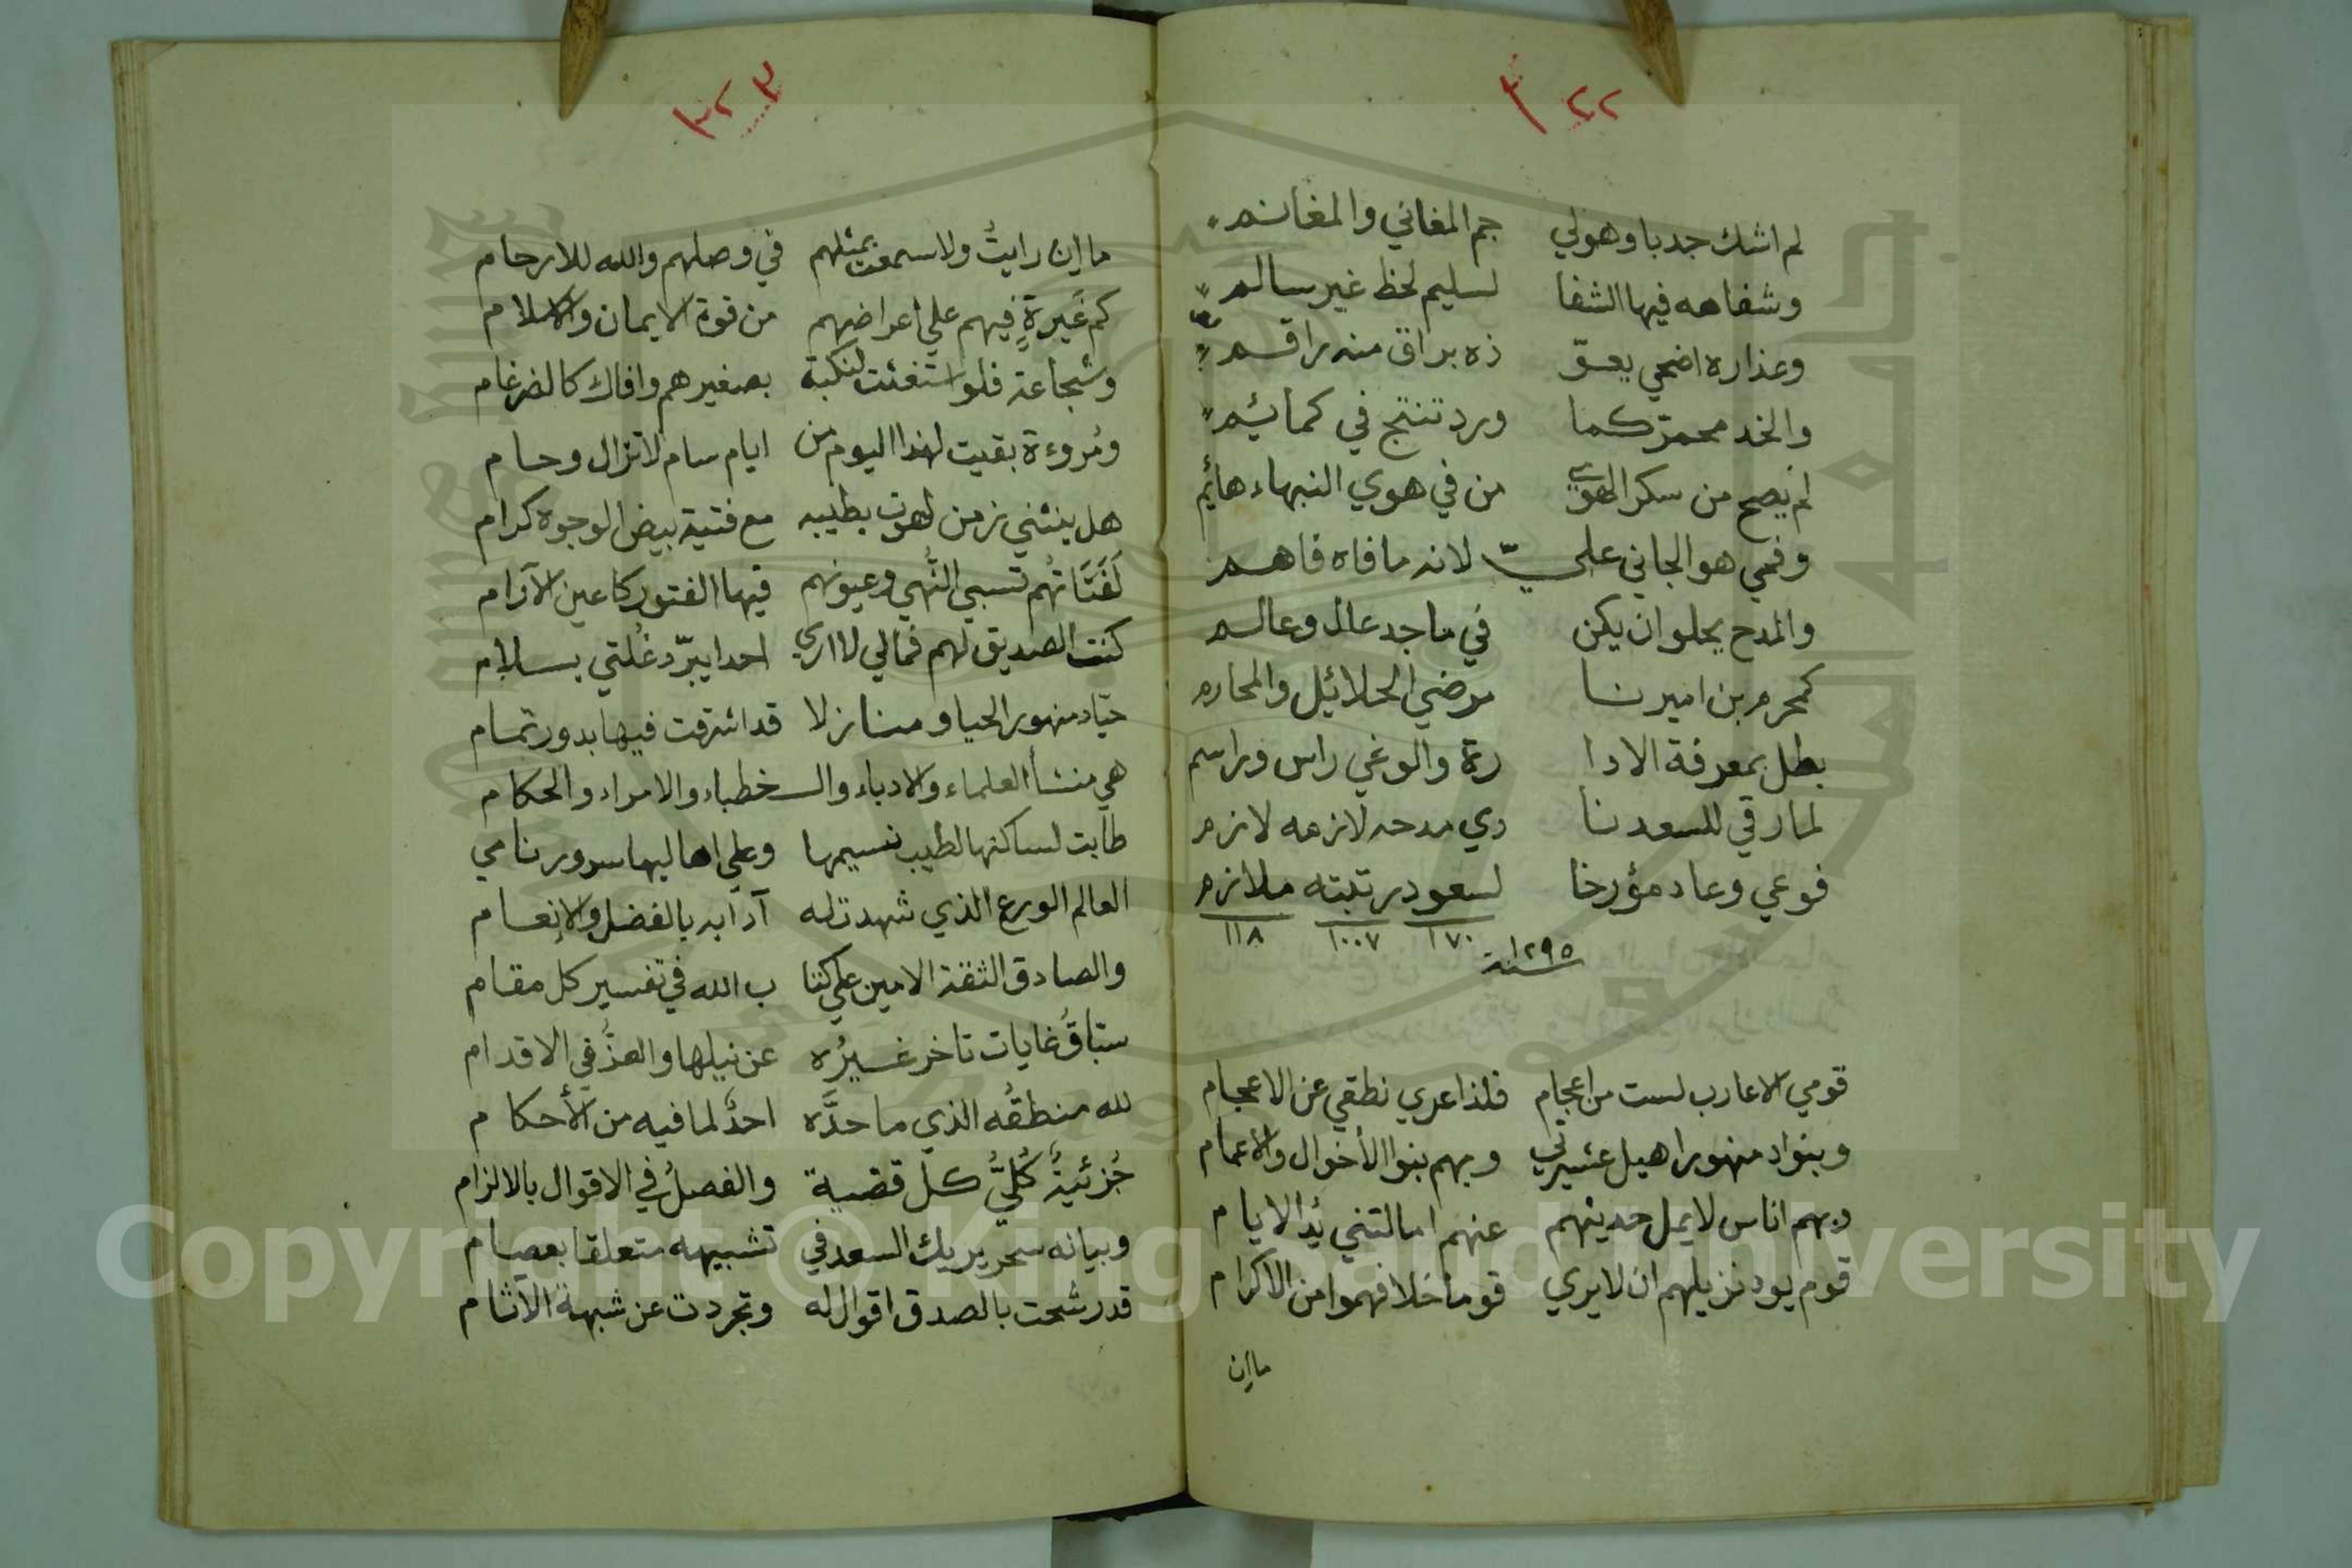 ٢٢
لم اشك جدبا وهولي جم المغاني والمغانم
وشفاهه فيها الشفا لسليم لحظ غير سالم
وعذاره اضحي يعق ذه براق منه راقم
والخد محمرّ كما ورد تنتج في كمائم
لم يصح من سكر الهوي من في هوي النبهاء هائم
وفمي هو الجاني علي لانه ما فاه فاهم
والمدح يحلو ان يكن في ماجد عال وعالم
كمحرم بن اميرنا مرضي الخلائل والمحارم
بطل بمعرفة الادا رة والوغي راس وراسم
لما رقي للسعد نا دي مدحه لازمه لازم
فوعي وعاد مؤرخا لسعود رتبته ملازم
١٧٠ ١٠٠٧ ١١٨
سنة ١٢٩٥
قومي الاعارب لست من اعجام فلذا عري نطقي عن الاعجام
وبنواد منهورا هيل عشيرتي وبهم بنوا الأخوال والاعمام
وبهم اناس لا يمل حديثهم عنهم امالتني يُد الايام
قوم يود نزيلهم ان لا يري قوما خلافهموا من الاكرام
ما إن
٢٣
ما إن رايتُ ولا سمعت بمثلهم في وصلهم والله للارحام
كم غَيرةٍ فيهم علي اعراضهم من قوة الايمان والاسلام
وشجاعة فلو استغثت لنكبة بصغيرهم وافاك كالضرغام
ومُروءة بقيت لهذا اليوم من ايام سام لا تزال وحام
هل ينثني زمن لهوت بطيبه مع فتية بيض الوجوه كرام
لَفَتَاتهُم تسبي النُّهي وعيونهم فيها الفتور كاعين الآرام
كنت الصديق لهم فمالي لا اري احدا يبرّد غُلتي بسلام
حيّاد منهور الحيا ومنازلا قد اشرقت فيها بدور تمام
هي منشأ العلماء والادباء والـ خطباء والامراء والحكام
طابت لساكنها لطيب نسيمها وعلي اهاليها سرور نامي
العالم الورع الذي شهدت له آدابه بالفضل والإنعام
والصادق الثقة الامين علي كتا ب الله في تفسير كل مقام
سبّاقُ غايات تاخر غيرُه عن نيلها والعزُّ في الاقدام
لله منطقُه الذي ما حدَّه احدٌ لما فيه من الأحكام
جُزئيةٌ كُليُّ كل قضية والفصلُ في الاقوال بالالزام
وبيانه سحر يريك السعد في تشبيهه متعلقا بعصام
قد رشحت بالصدق اقوال له وتجردت عن شبهة الاثام
Copyright © King Saud University